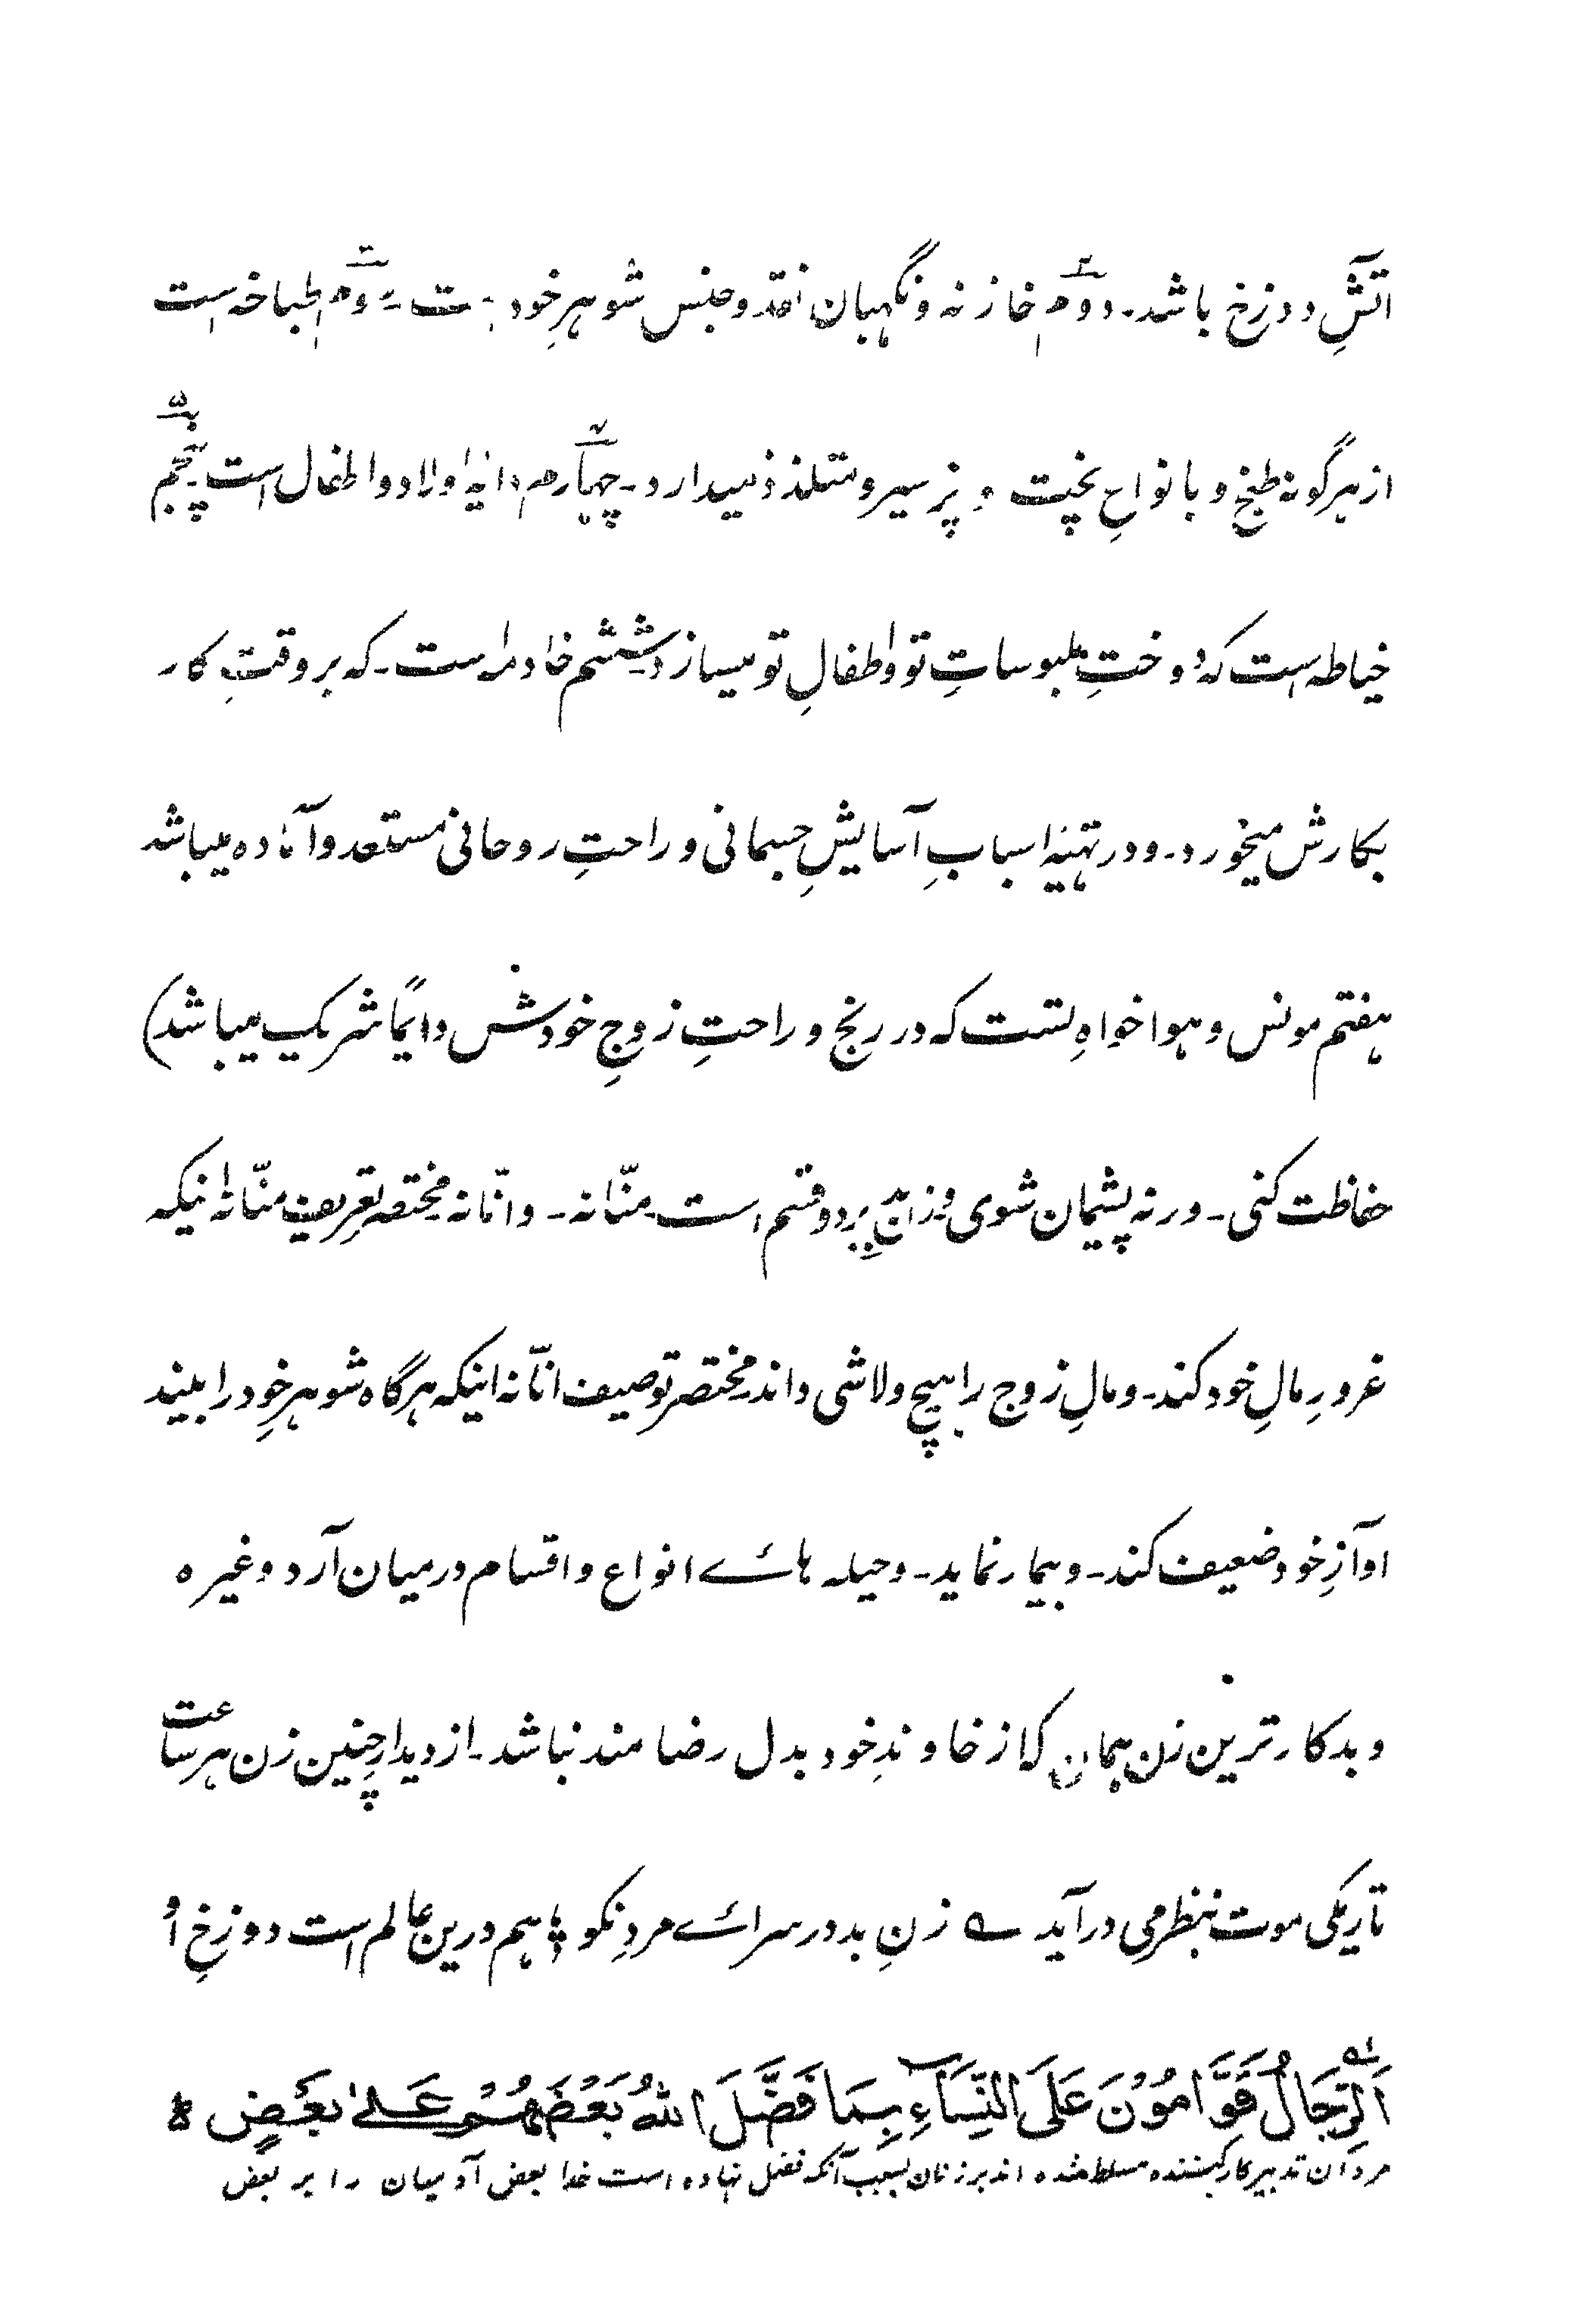 آتشِ دوزخ باشد۔ دوم خازنه و نگهبان نقد و جنس شوهرِ خود است۔ سوم طباخه است
از هرگونه طبخ و بانواحِ پخت و پز سیر و متلذذ میدارد۔ چهارم دایهٔ اولاد و اطفال است۔ پنجم
خیاطه است که دوختِ ملبوساتِ تو و اطفالِ تو میسازد۔ ششم خادمه است۔ که بر وقتِ کار
بکارش میخورد۔ و در تهیئه اسبابِ آسایشِ جسمانی و راحتِ روحانی مستعد و آماده میباشد
هفتم مونس و هواخواهِ تست که در رنج و راحتِ زوجِ خودش دایمًا شریک میباشد)
حفاظت کنی۔ ورنه پشیمان شوی و زنانِ بد بر دو قسم است۔ منّانه۔ و انّانه۔ مختصر تعریف منّانه اینکه
غرورِ مالِ خود کند۔ و مالِ زوج را هیچ و لاشی داند۔ مختصر توصیف انّانه اینکه هرگاه شوهرِ خود را بیند
آوازِ خود ضعیف کند۔ و بیمار نماید۔ و حیله هائے انواع و اقسام درمیان آرد وغیره
و بدکار ترین زن همان که از خاوندِ خود بدل رضامند نباشد۔ از دیدارِ چنین زن هر ساعت
تاریکی موت بنظر می درآید ؎ زنِ بد در سرائے مردِ نکو ؛ هم درین عالم است دوزخِ اُو
اَلرِّجَالُ قَوَّامُوْنَ عَلَی النِّسَآءِ بِمَا فَضَّلَ اللهُ بَعْضَهُمْ عَلٰی بَعْضٍ
مردان تدبیر کار کننده مسلط شده اند بر زنان بسبب آنکه فضل نهاده است خدا بعض آدمیان را بر بعض